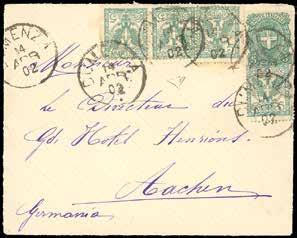 MENZA
14
APR
02
APR
02
02
Monsieur
le Directeur du
Gd. Hotel Henrions
Aachen
Germania